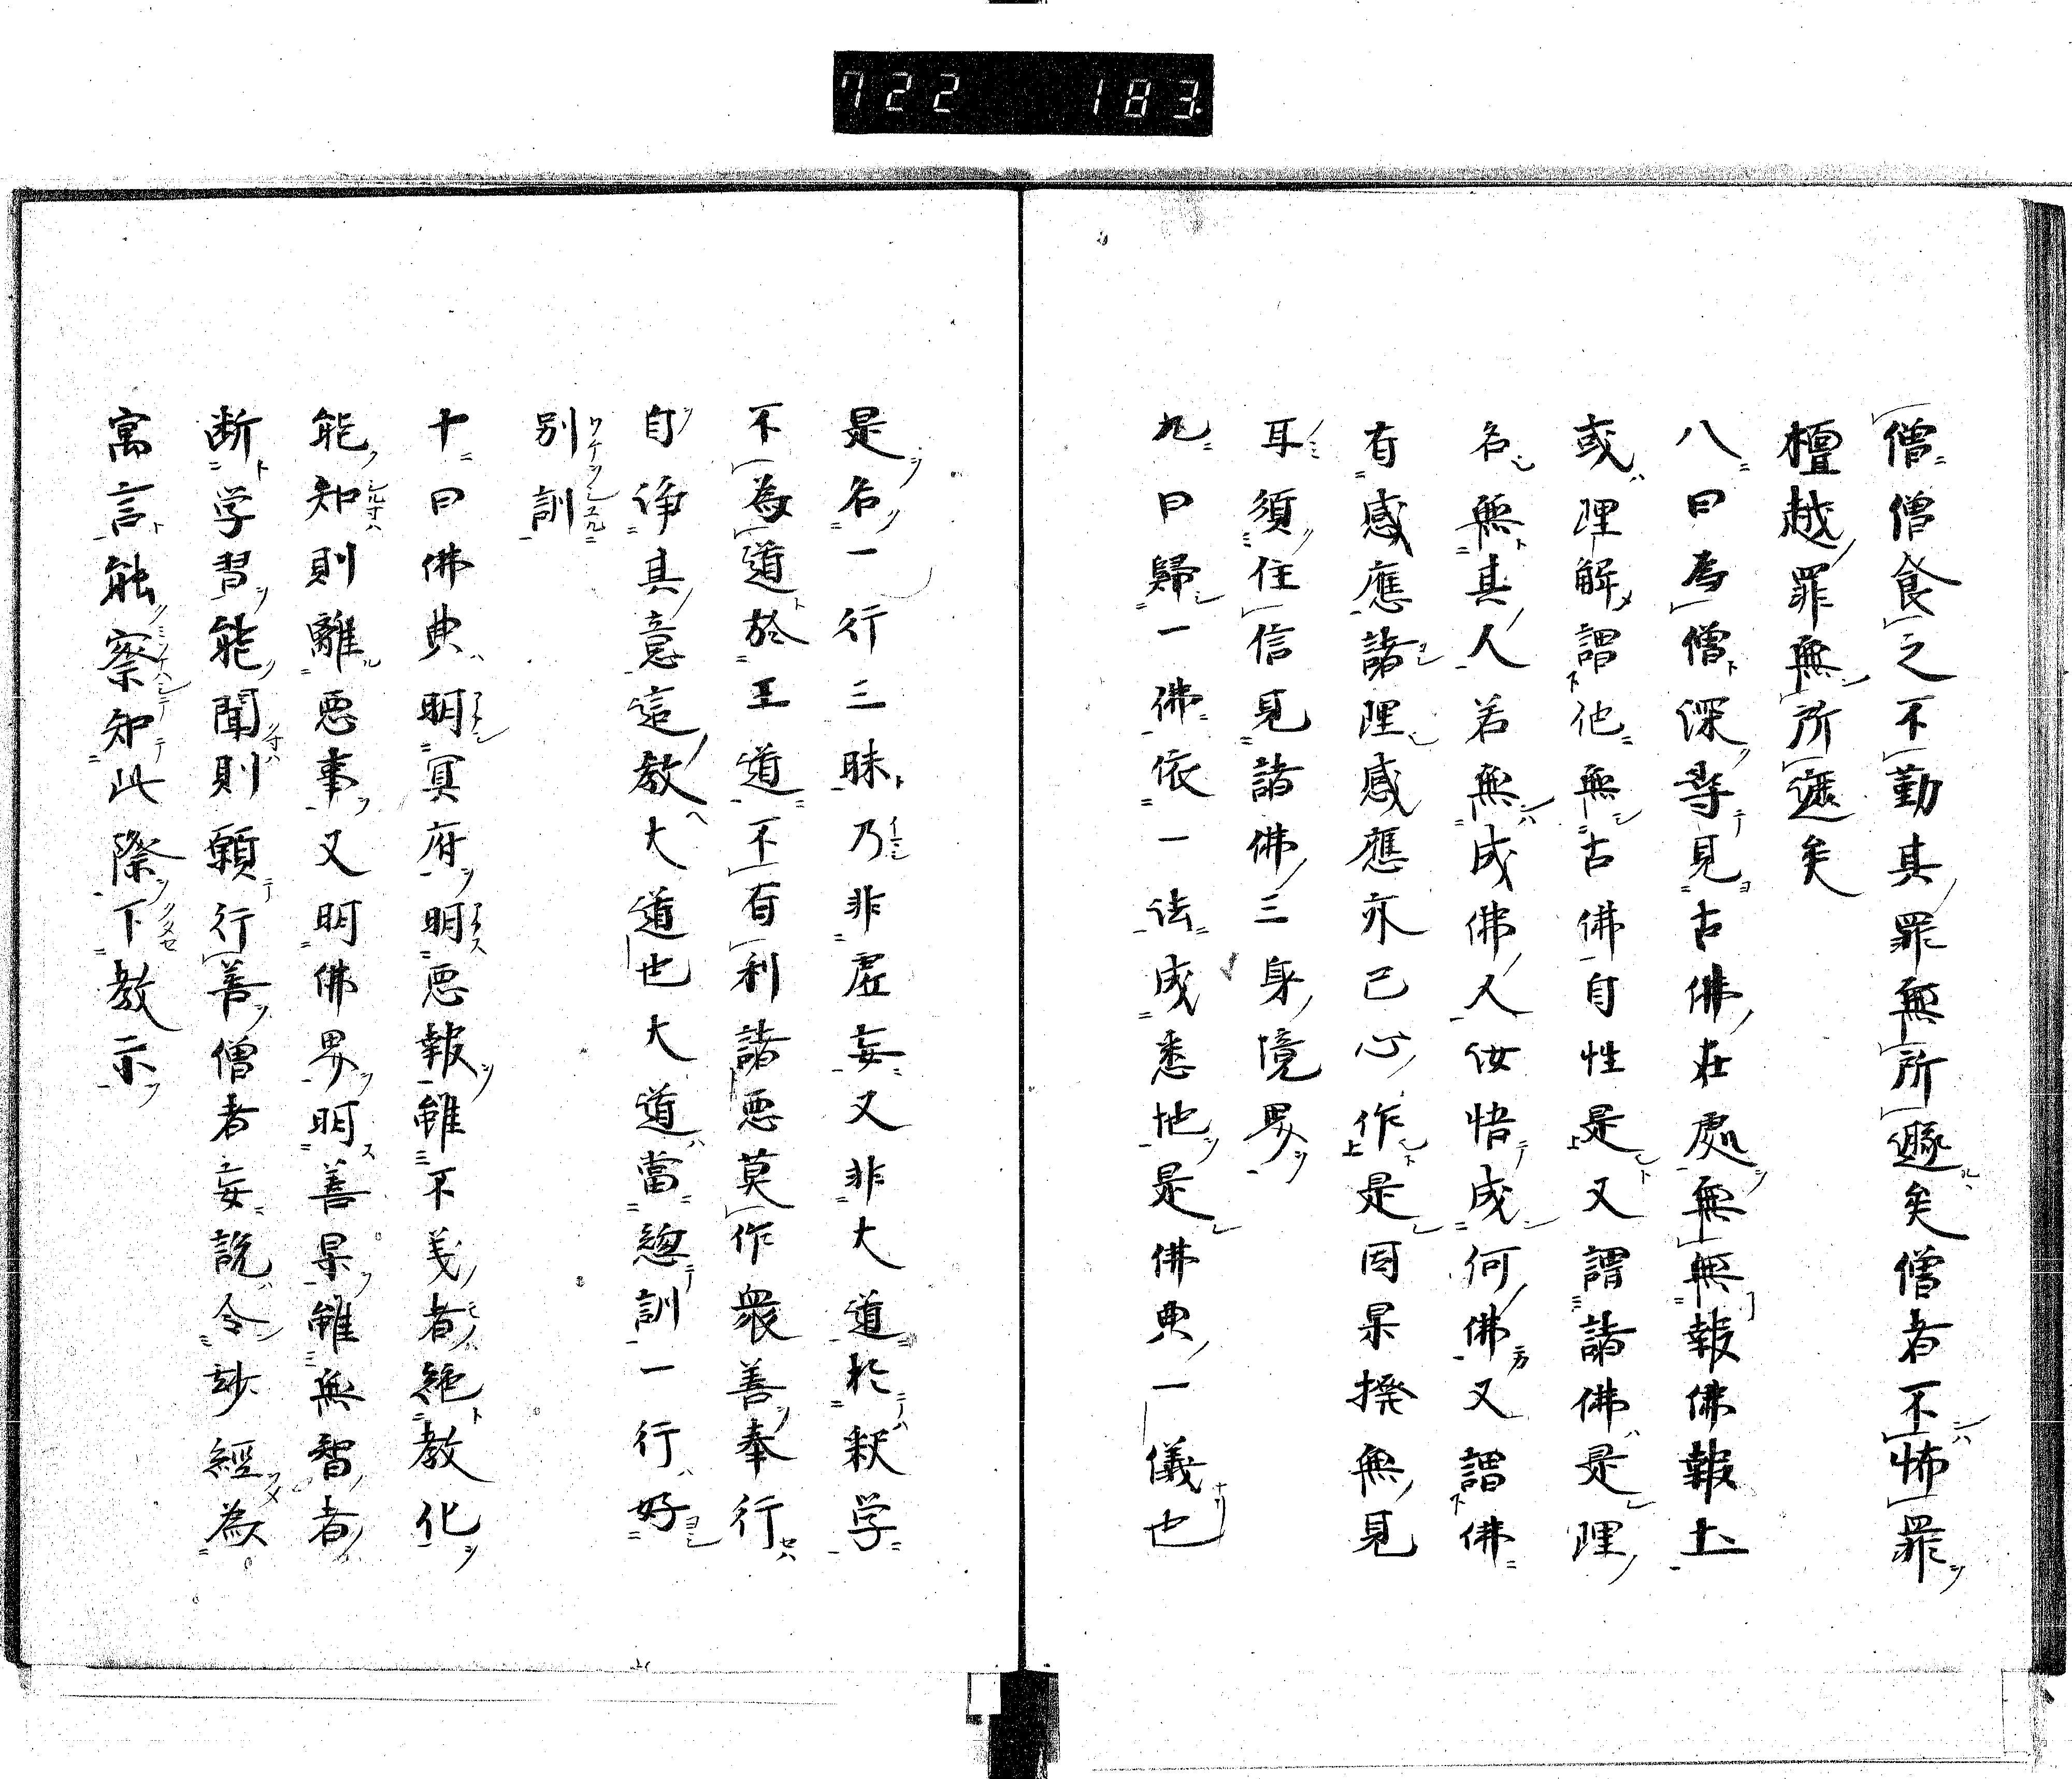 722 183
僧僧食之不勤其罪無所遯矣僧者不怖罪
檀越罪無所遮矣
八曰為僧深尋見古佛在處無無報佛報土
或理解謂他無古佛自性是又謂諸佛是理
名無其人若無成佛人汝悟成何佛又謂佛
有感應諸理感應亦己心作是因果撥無見
耳須住信見諸佛三身境界
九曰歸一佛依一法成悉地是佛典一儀也
是名一行三昧乃非虛妄又非大道於釈学
不為道於王道不有利諸悪莫作衆善奉行
自浄其意這教大道也大道當總訓一行好
別訓
十曰佛典明冥府明悪報雖不義者絶教化
能知則離悪事又明佛界明善果雖無智者
断学習能聞則願行善僧者妄説令妙經為
寓言能察知此際下教示